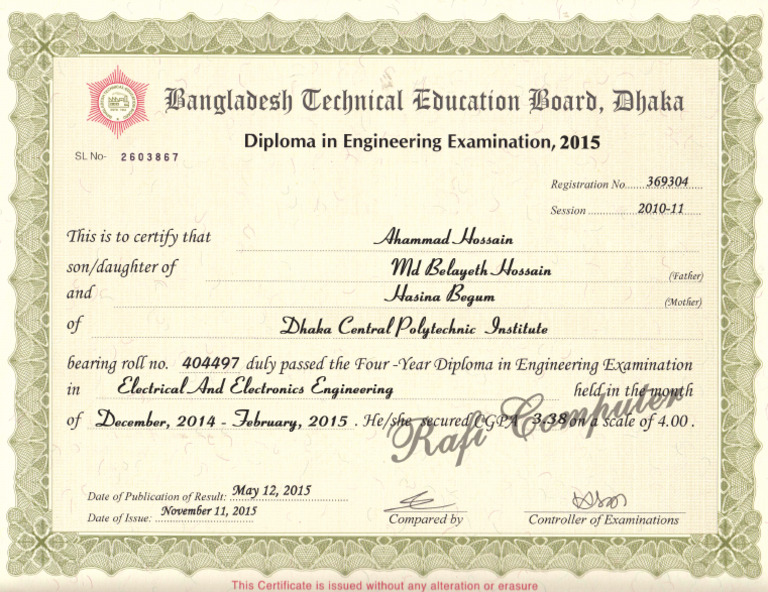 Bangladesh Technical Education Board, Dhaka
Diploma in Engineering Examination, 2015
SL No- 2603867
Registration No. 369304
Session 2010-11
This is to certify that Ahammad Hossain
son/daughter of Md Belayeth Hossain (Father)
and Hasina Begum (Mother)
of Dhaka Central Polytechnic Institute
bearing roll no. 404497 duly passed the Four -Year Diploma in Engineering Examination
in Electrical And Electronics Engineering held in the month
of December, 2014 - February, 2015 . He/she secured CGPA 3.38 on a scale of 4.00 .
Rafi Computer
Date of Publication of Result: May 12, 2015
Date of Issue: November 11, 2015
Compared by
Controller of Examinations
This Certificate is issued without any alteration or erasure